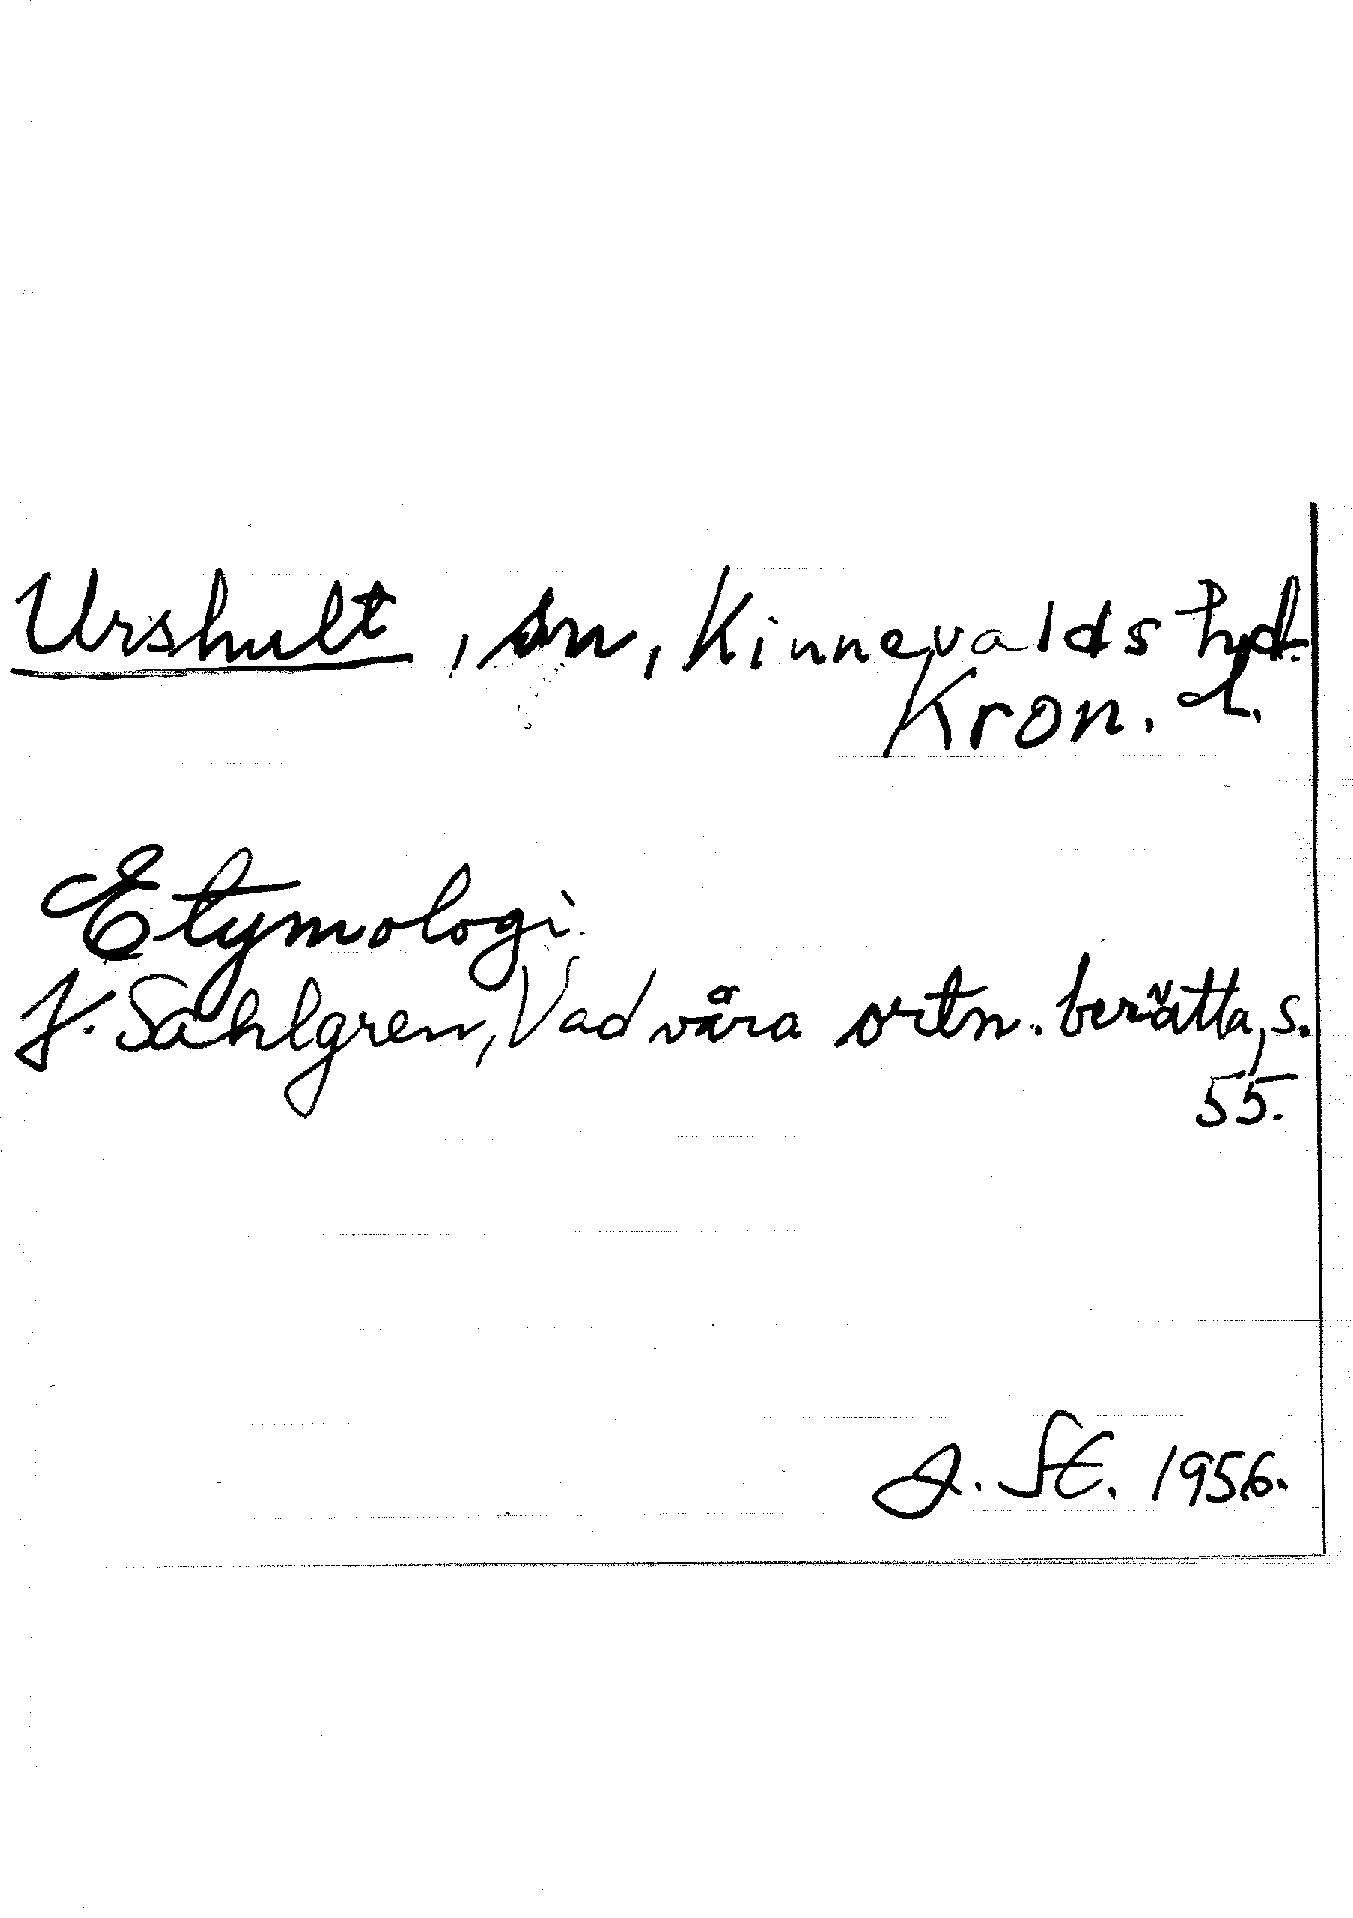 Urshult, sn, Kinnevalds hd.
Kron. l.
Etymologi.
J. Sahlgren, Vad våra ortn. berätta, s.
55.
J. St. 1956.